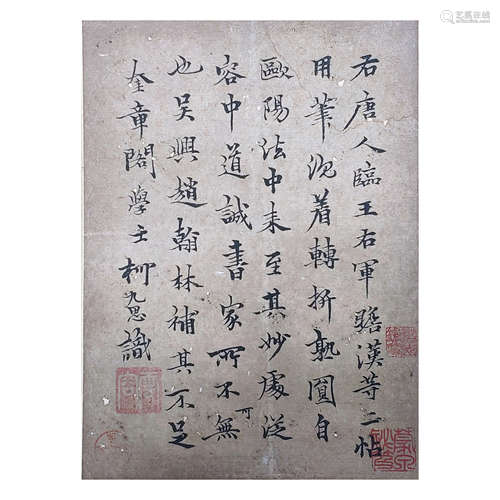 右唐人臨王右軍瞻漢等二帖
用筆沉着轉折熟圓自
歐陽法中来至其妙處從
容中道誠書家所不可無
也吴興趙翰林補其不足
奎章閣學士柯九思識